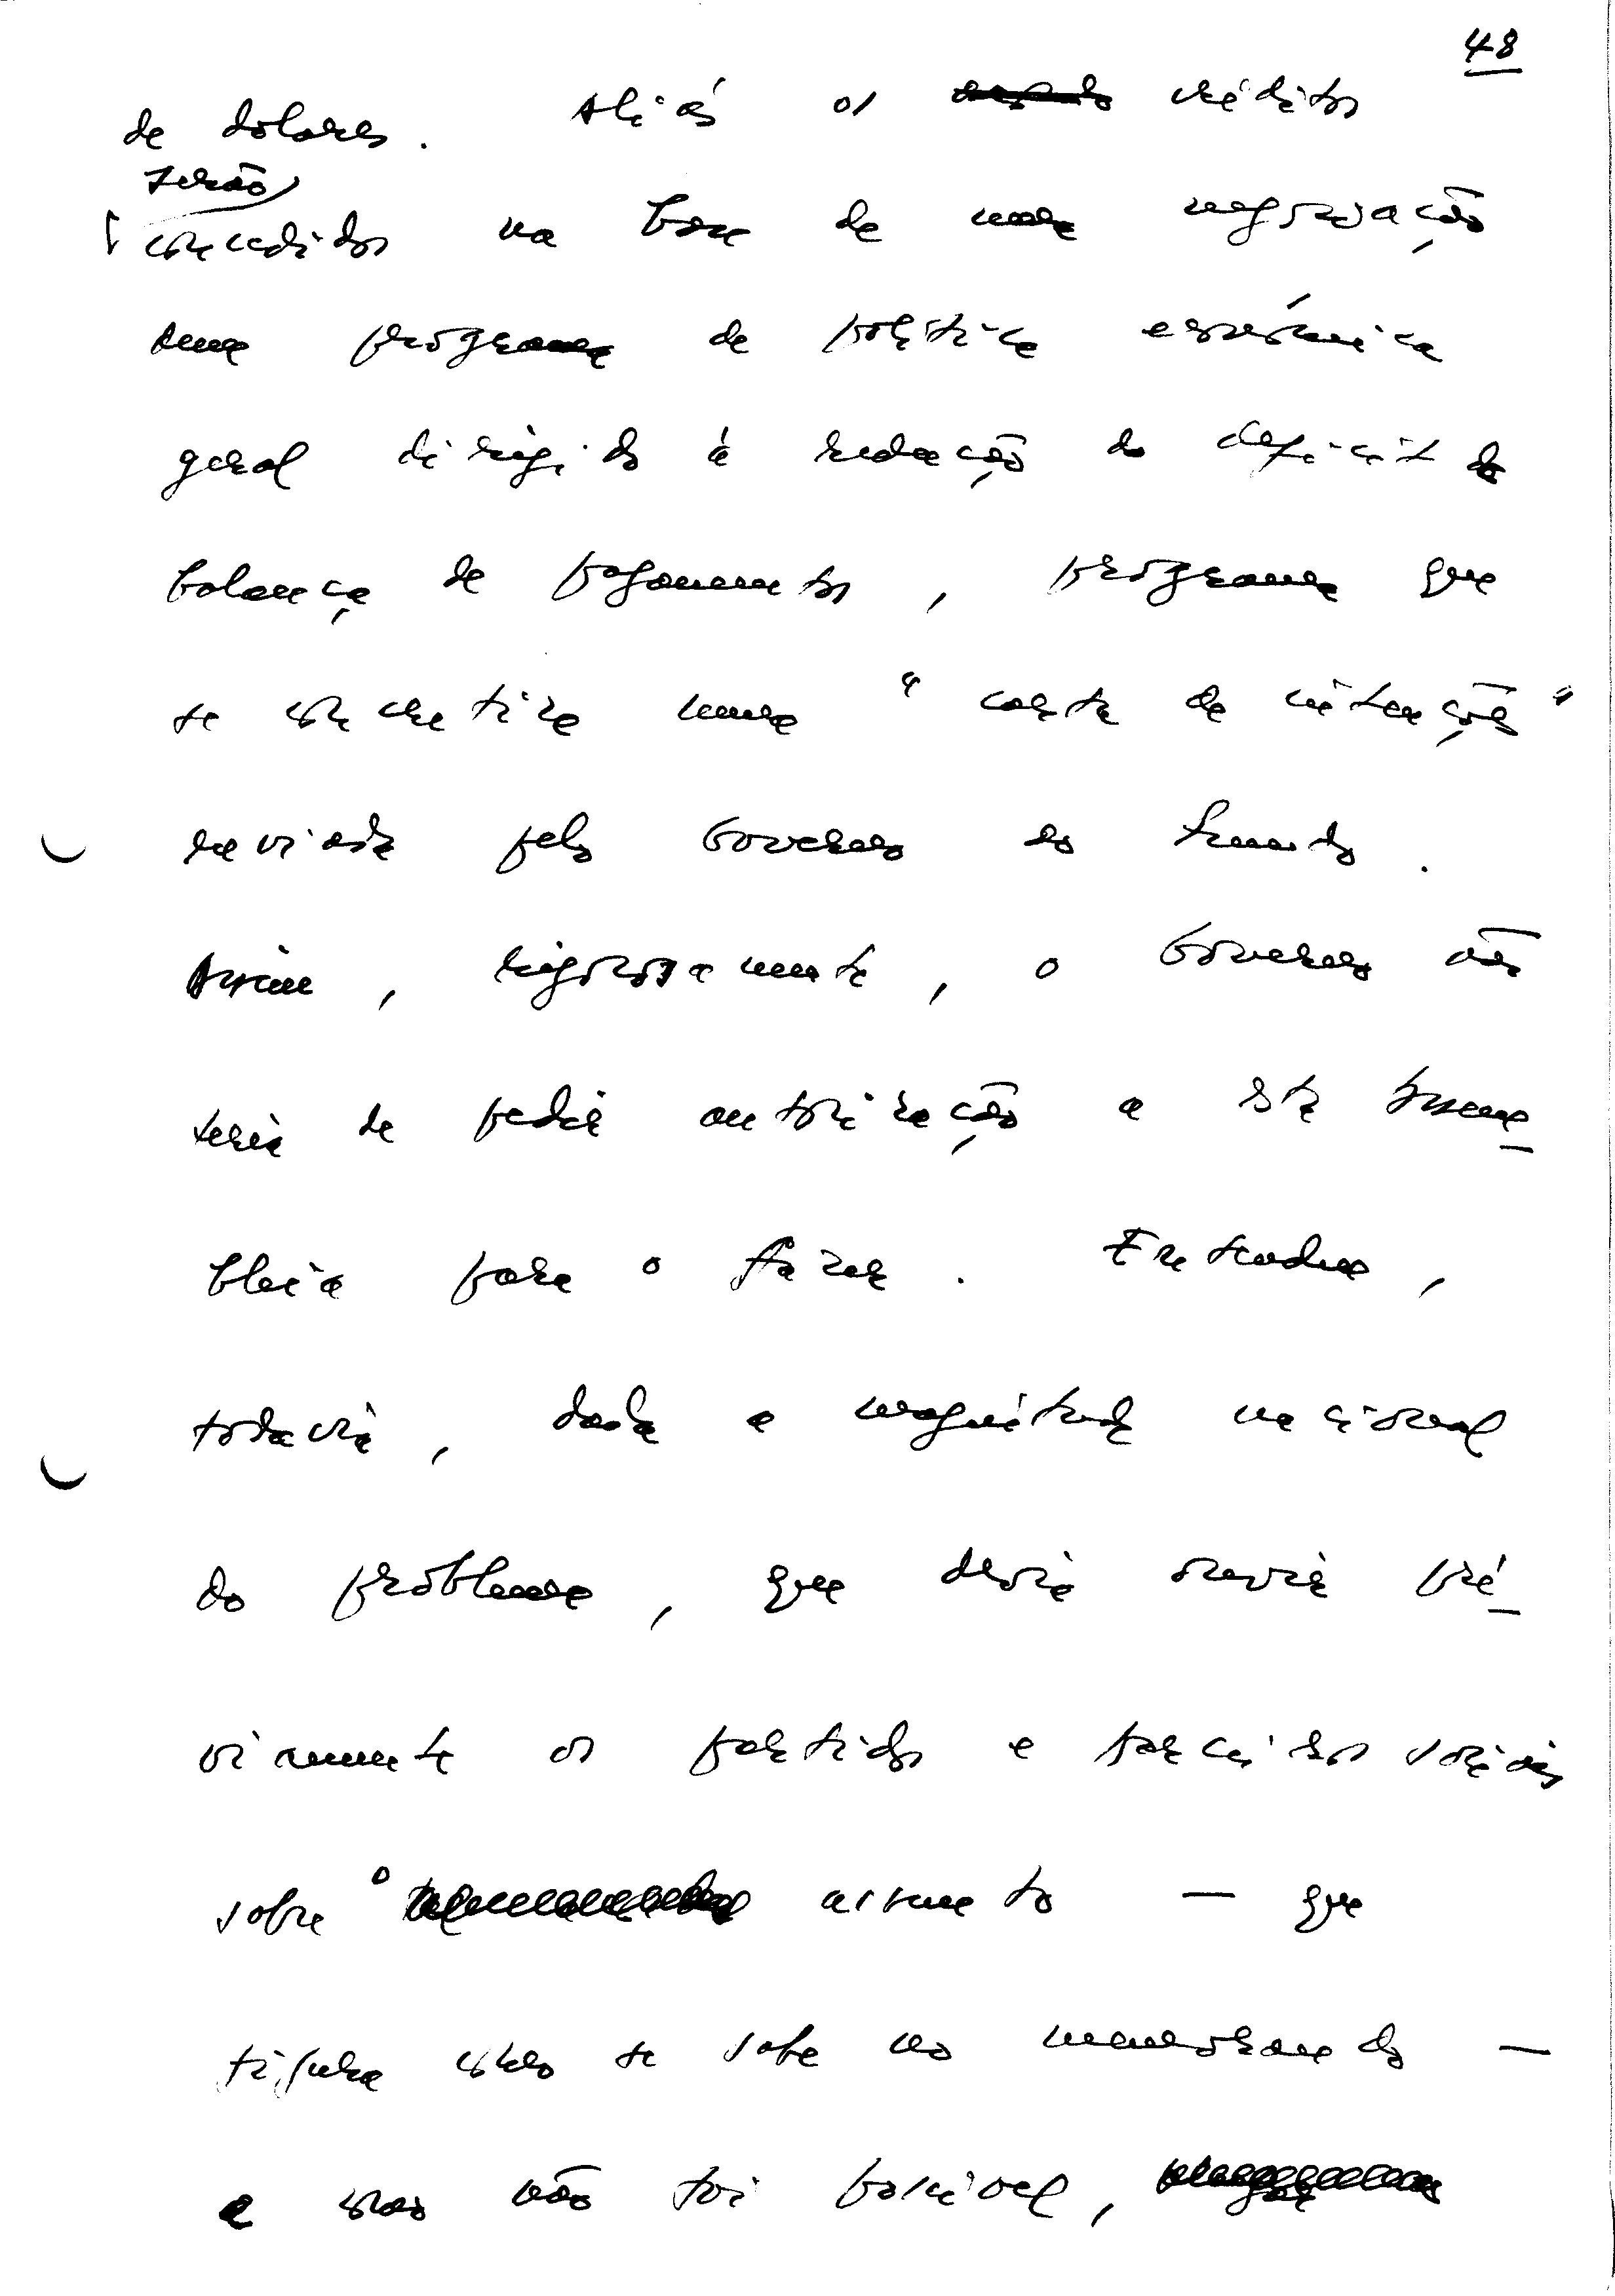 48
de dólares. Aliás os créditos
serão
concedidos na base de uma negociação
programa de política económica
geral dirigido à redução do deficit da
balança de pagamentos, programa que
se concretiza numa "carta de intenções"
enviada pelo Governo ao Fundo.
Assim, rigorosamente, o Governo não
teria de pedir autorização a esta Assem-
bleia para o fazer. Entendeu,
todavia, dada a magnitude nacional
do problema, que devia ouvir pré-
viamente os partidos e parceiros sociais
sobre o assunto — que
figura como se sabe no memorando —
e como não foi possível,